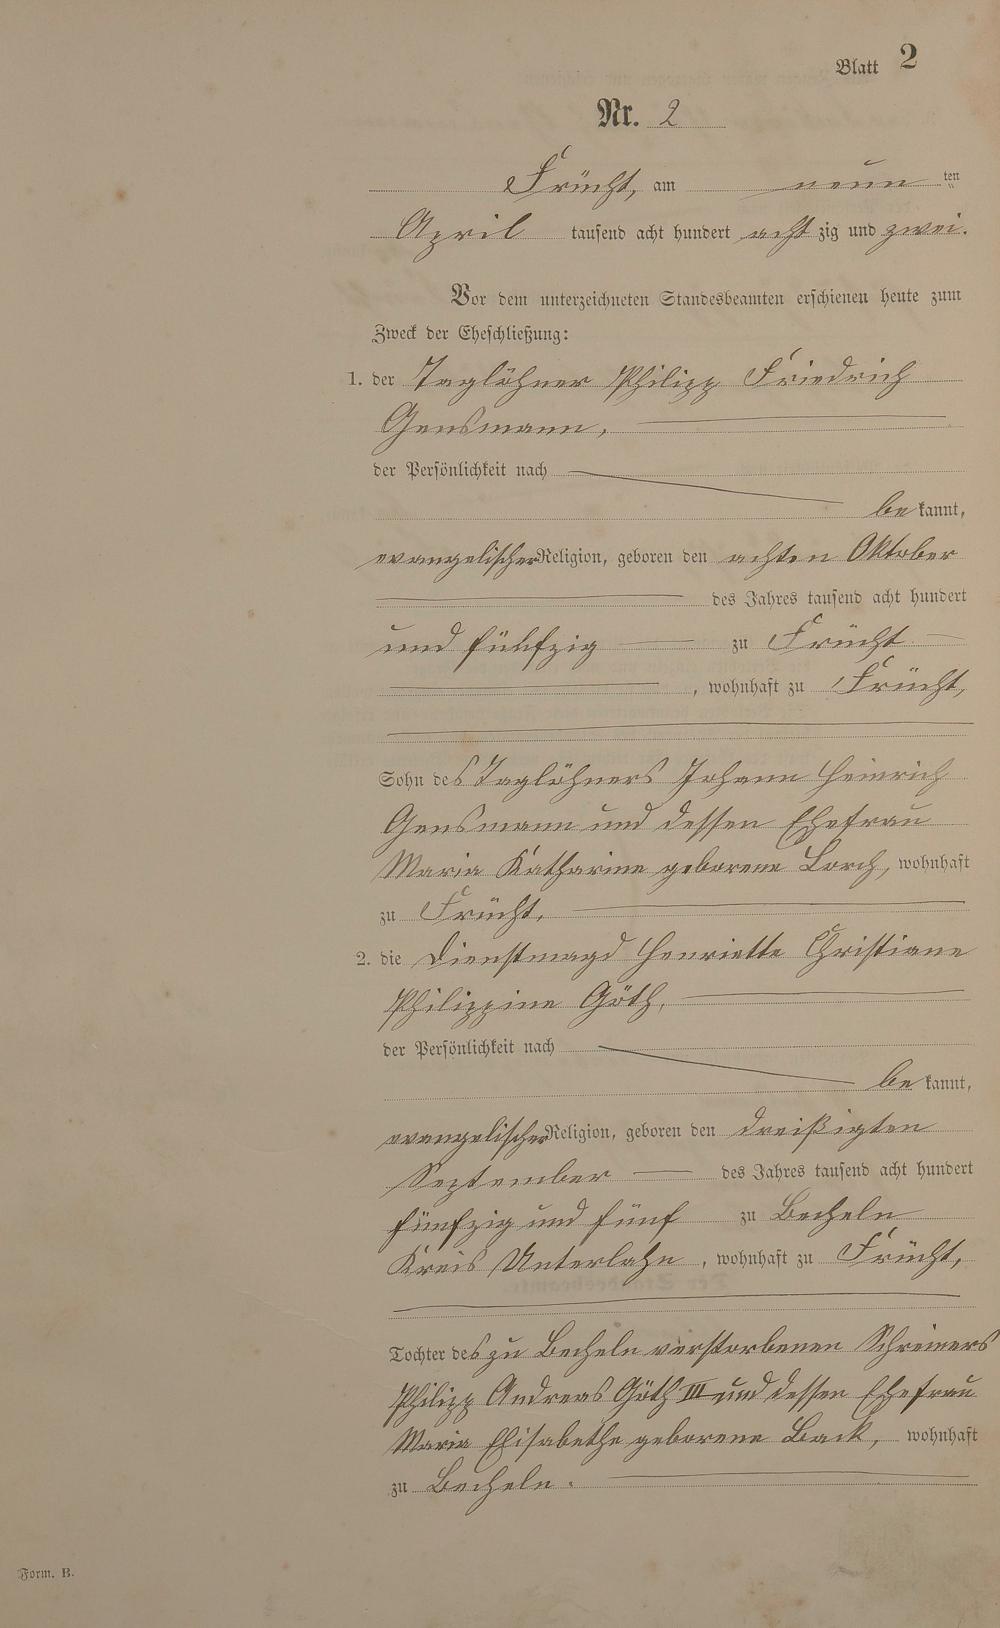 Blatt 2
Nr. 2
Frücht, am neun ten
April tausend acht hundert acht zig und zwei.
Vor dem unterzeichneten Standesbeamten erschienen heute zum
Zweck der Eheschließung:
1. der Taglöhner Philipp Friedrich
Gensmann,
der Persönlichkeit nach
be kannt,
evangelischer Religion, geboren den achten Oktober
des Jahres tausend acht hundert
und fünfzig zu Frücht
, wohnhaft zu Frücht,
Sohn des Taglöhners Johann Heinrich
Gensmann und dessen Ehefrau
Maria Katharine geborene Lorch, wohnhaft
zu Frücht.
2. die Dienstmagd Henriette Christiane
Philippine Göth,
der Persönlichkeit nach
be kannt,
evangelischer Religion, geboren den dreißigten
September des Jahres tausend acht hundert
fünfzig und fünf zu Becheln
Kreis Unterlahn, wohnhaft zu Frücht,
Tochter des zu Becheln verstorbenen Schreiners
Philipp Andreas Göth III und dessen Ehefrau
Maria Elisabethe geborene Back, wohnhaft
zu Becheln.
Form. B.